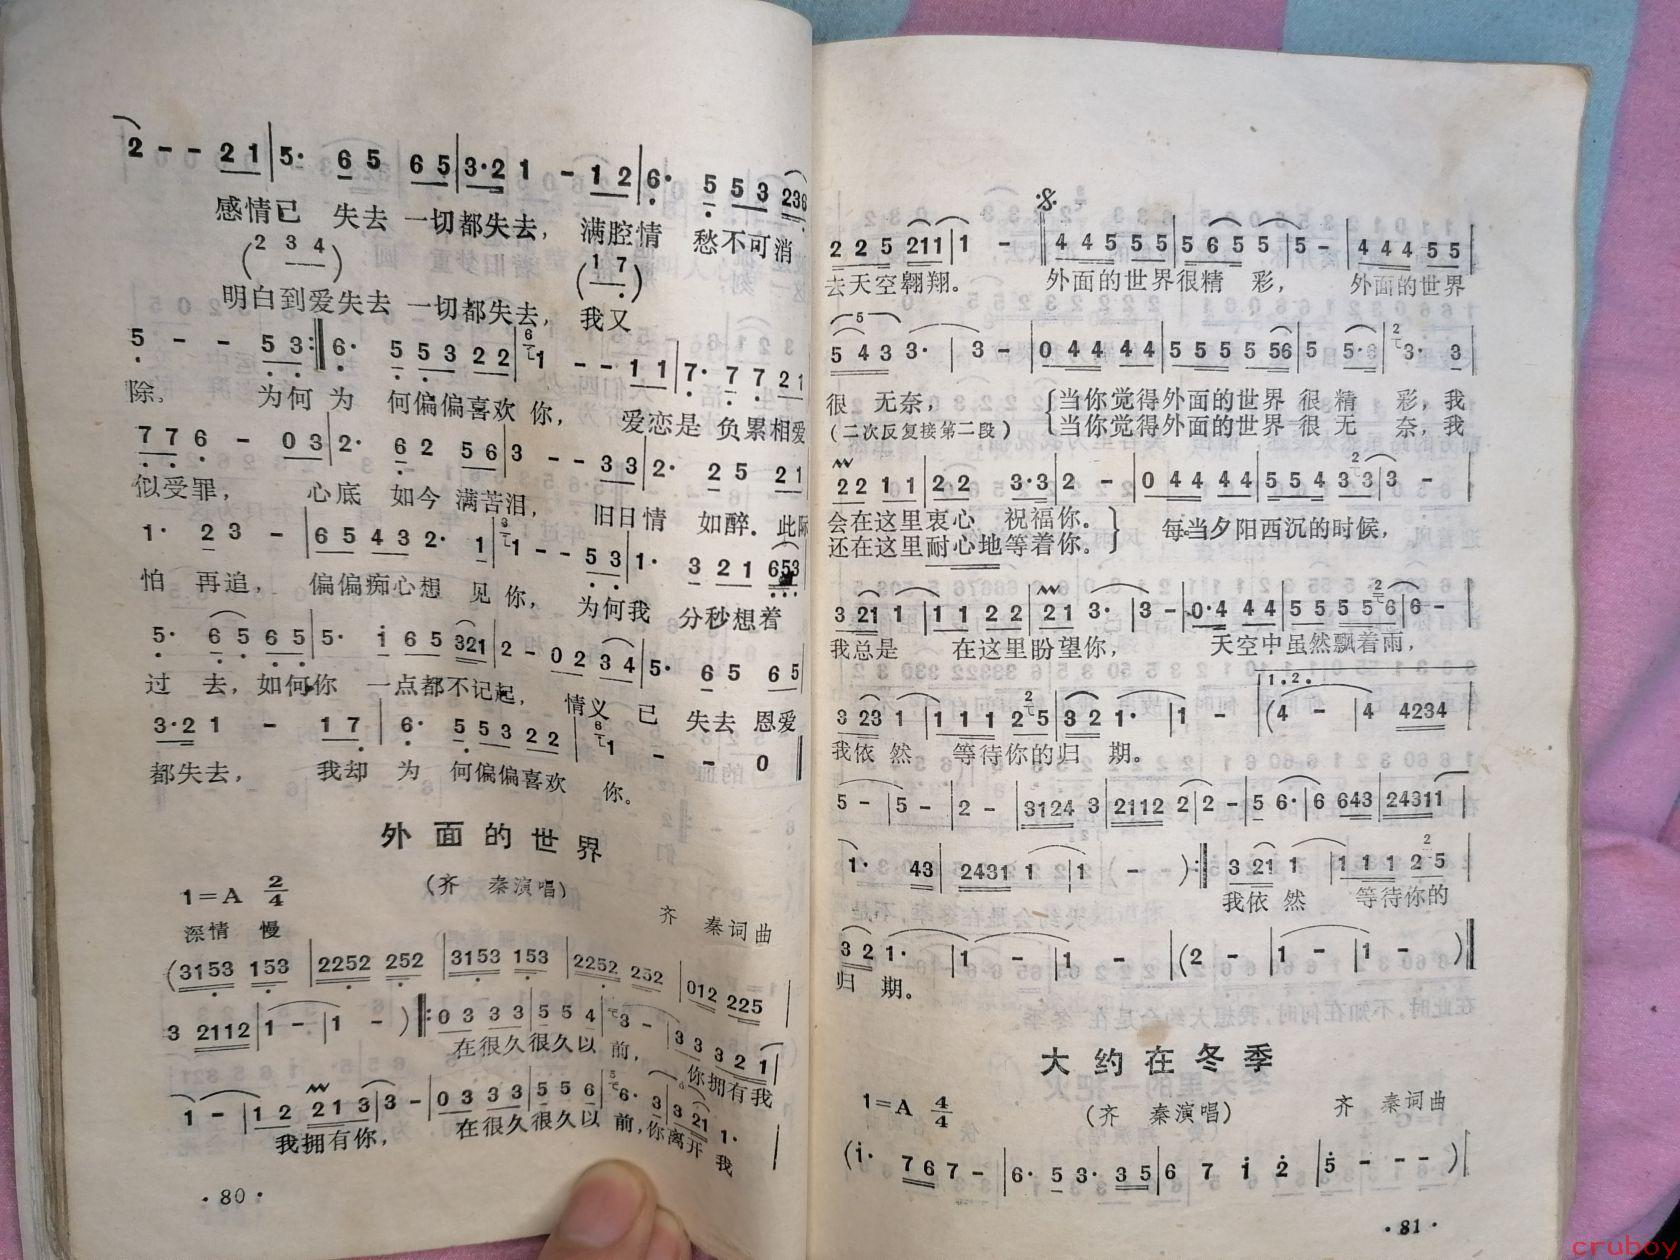 2 - - 2 1 | 5· 6 5 6 5 | 3·2 1 - 1 2 | 6· 5 5 3 236
感情已 失去 一切都失去, 满腔情 愁不可消
(2 3 4) (1 7)
明白到爱失去 一切都失去, 我又
5 - - 5 3 :‖ 6· 5 5 3 2 2 | 1 - - 1 1 | 7· 7 7 2 1
除, 为何 为 何偏偏喜欢 你, 爱恋是 负累相爱
7 7 6 - 0 3 | 2· 6 2 5 6 | 3 - - 3 3 | 2· 2 5 2 1
似受罪, 心底 如今 满苦泪, 旧日情 如醉. 此际
1· 2 3 - | 6 5 4 3 2· 1 | 1 - - 5 3 | 1· 3 2 1 653
怕 再追, 偏偏痴心想 见 你, 为何我 分秒想着
5· 6 5 6 5 | 5· i 6 5 321 | 2 - 0 2 3 4 | 5· 6 5 6 5
过 去, 如何你 一点都不记起, 情义 已 失去 恩爱
3·2 1 - 1 7 | 6· 5 5 3 2 2 | 1 - - 0 ‖
都失去, 我却 为 何偏偏喜欢 你。
外面的世界
1=A 2/4
(齐 秦演唱)
齐 秦词曲
深情 慢
(3153 153 | 2252 252 | 3153 153 | 2252 252 | 012 225 |
3 2112 | 1 - | 1 - ) ‖: 0 3 3 3 | 5 5 4 | 3 - | 3 3 3 2 1
在很久很久以 前, 你拥有我
1 - | 1 2 2 1 3 | 3 - | 0 3 3 3 | 5 5 6 | 6· 3 | 3 21 1· |
我拥有你, 在很久很久以 前, 你离开 我
·80·
2 2 5 211 | 1 - ‖ 4 4 5 5 5 | 5 6 5 5 | 5 - | 4 4 4 5 5 |
去天空翱翔。 外面的世界很精 彩, 外面的世界
5
5 4 3 3· | 3 - | 0 4 4 4 4 | 5 5 5 5 56 | 5 5·6 | 3· 3 |
很 无奈, 当你觉得外面的世界 很 精 彩, 我
(二次反复接第二段) 当你觉得外面的世界 很 无 奈, 我
2 2 1 1 | 2 2 3·3 | 2 - | 0 4 4 4 4 | 5 5 4 3 3 | 3 - |
会在这里衷心 祝福你。 每当夕阳西沉的时候,
还在这里耐心地等着你。
3 21 1 | 1 1 2 2 | 2 1 3· | 3 - | 0·4 4 4 | 5 5 5 5 6 | 6 - |
我总是 在这里盼望你, 天空中虽然飘着雨,
1.2.
3 23 1 | 1 1 1 2 5 | 3 2 1· | 1 - | (4 - | 4 4234 |
我依 然 等待你的归 期。
5 - | 5 - | 2 - | 3124 3 | 2112 2 | 2 - | 5 6· | 6 643 | 24311 |
1· 43 | 2431 1 | 1 - ) :‖ 3 21 1 | 1 1 1 2 5 |
我依 然 等待你的
3 2 1· | 1 - | 1 - | (2 - | 1 - | 1 - ) ‖
归 期。
大约在冬季
1=A 4/4
(齐 秦演唱)
齐 秦词曲
(i· 7 6 7 - | 6· 5 3· 3 5 | 6 7 i 2 | 5 - - - ) |
·81·
cruboy